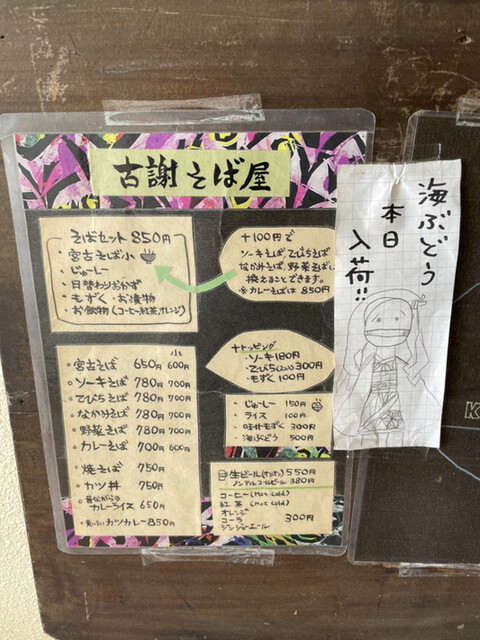 古謝そば屋
そばセット 850円
・宮古そば小
・じゅーしー
・日替わりおかず
・もずく・お漬物
・お飲物(コーヒー,紅茶,オレンジ)
+100円で
ソーキそば,てびちそば
なかみそば,野菜そばに
換えることできます。
※カレーそばは 850円
小
・宮古そば 650円 600円
・ソーキそば 780円 700円
・てびちそば 780円 700円
・なかみそば 780円 700円
・野菜そば 780円 700円
・カレーそば 700円 600円
・焼そば 750円
・カツ丼 750円
・昔ながらの
カレーライス 650円
カツカレー 850円
+トッピング
・ソーキ 180円
・てびち 300円
・もずく 100円
・じゅーしー 150円
・ライス 100円
・味付もずく 300円
・海ぶどう 500円
生ビール 550円
ノンアルコールビール 380円
コーヒー(Hot Cold)
紅茶(Hot Cold)
オレンジ
コーラ 300円
ジンジャエール
海ぶどう
本日
入荷!!
K